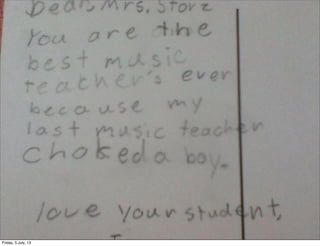 Dear, Mrs. Storz
You are the
best music
teacher's ever
because my
last music teacher
choked a boy.
love your student,
Friday, 5 July, 13